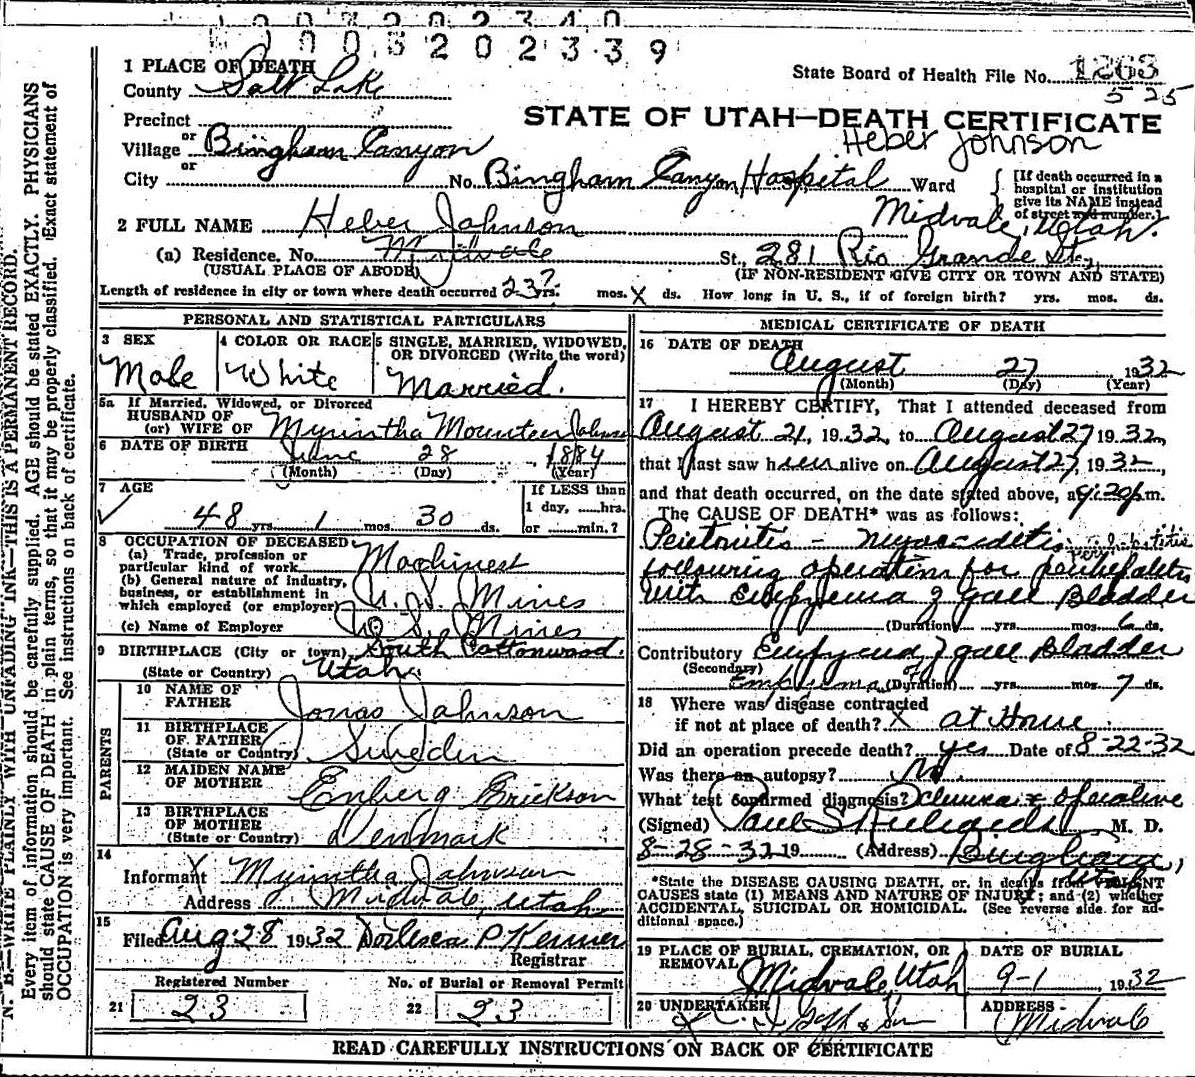 1 0 0 3 2 0 2 3 4 0
1 0 0 3 2 0 2 3 3 9
1 PLACE OF DEATH
State Board of Health File No. 1263
County Salt Lake
5 25
Precinct
STATE OF UTAH—DEATH CERTIFICATE
Heber Johnson
or
Village Bingham Canyon
or
City No. Bingham Canyon Hospital Ward
[If death occurred in a hospital or institution give its NAME instead of street and number.]
2 FULL NAME Heber Johnson
Midvale, Utah.
(a) Residence. No. Midvale St., 281 Rio Grande St.,
(USUAL PLACE OF ABODE) (IF NON-RESIDENT GIVE CITY OR TOWN AND STATE)
Length of residence in city or town where death occurred 23? yrs. mos. X ds. How long in U. S., if of foreign birth? yrs. mos. ds.
PERSONAL AND STATISTICAL PARTICULARS
3 SEX
Male
4 COLOR OR RACE
White
5 SINGLE, MARRIED, WIDOWED, OR DIVORCED (Write the word)
Married.
5a If Married, Widowed, or Divorced
HUSBAND OF
(or) WIFE OF Myrintha Mounteer Johnson
6 DATE OF BIRTH June 28 1884
(Month) (Day) (Year)
7 AGE
48 yrs. 1 mos. 30 ds.
If LESS than
1 day, ......hrs.
or ......min.?
8 OCCUPATION OF DECEASED
(a) Trade, profession or
particular kind of work Machinest
(b) General nature of industry,
business, or establishment in
which employed (or employer) U. S. Mines
(c) Name of Employer U. S. Mines
9 BIRTHPLACE (City or town) South Cottonwood.
(State or Country) Utah
PARENTS
10 NAME OF
FATHER Jonas Johnson
11 BIRTHPLACE
OF FATHER
(State or Country) Sweden
12 MAIDEN NAME
OF MOTHER Enberg Erickson
13 BIRTHPLACE
OF MOTHER
(State or Country) Denmark
14
Informant X Myrintha Johnson
Address Midvale, Utah
15
Filed Aug. 28 1932 P. Kenner
Registrar
Registered Number
21 23
No. of Burial or Removal Permit
22 23
MEDICAL CERTIFICATE OF DEATH
16 DATE OF DEATH
August 27 1932
(Month) (Day) (Year)
17 I HEREBY CERTIFY, That I attended deceased from
August 21, 1932, to August 27 1932,
that I last saw him alive on August 27, 1932,
and that death occurred, on the date stated above, at 9:20 p.m.
The CAUSE OF DEATH* was as follows:
Peritonitis – Myocarditis
following operation for
with Empyema of Gall Bladder
(Duration) yrs. mos. 6 ds.
Contributory Empyema of gall Bladder
(Secondary)
Empyema of (Duration) yrs. mos. 7 ds.
18 Where was disease contracted
if not at place of death? X at Home
Did an operation precede death? yes Date of 8-22-32
Was there an autopsy? No.
What test confirmed diagnosis? Clinical & operative
(Signed) Paul S. M. D.
8-28-32 19 (Address) Bingham, Utah
*State the DISEASE CAUSING DEATH, or, in deaths from VIOLENT
CAUSES state (1) MEANS AND NATURE OF INJURY; and (2) whether
ACCIDENTAL, SUICIDAL OR HOMICIDAL. (See reverse side for ad-
ditional space.)
19 PLACE OF BURIAL, CREMATION, OR
REMOVAL Midvale, Utah
DATE OF BURIAL
9-1 1932
20 UNDERTAKER
Goff & Son
ADDRESS
Midvale
READ CAREFULLY INSTRUCTIONS ON BACK OF CERTIFICATE
N. B.—WRITE PLAINLY WITH UNFADING INK—THIS IS A PERMANENT RECORD.
Every item of information should be carefully supplied. AGE should be stated EXACTLY. PHYSICIANS
should state CAUSE OF DEATH in plain terms, so that it may be properly classified. Exact statement of
OCCUPATION is very important. See instructions on back of certificate.